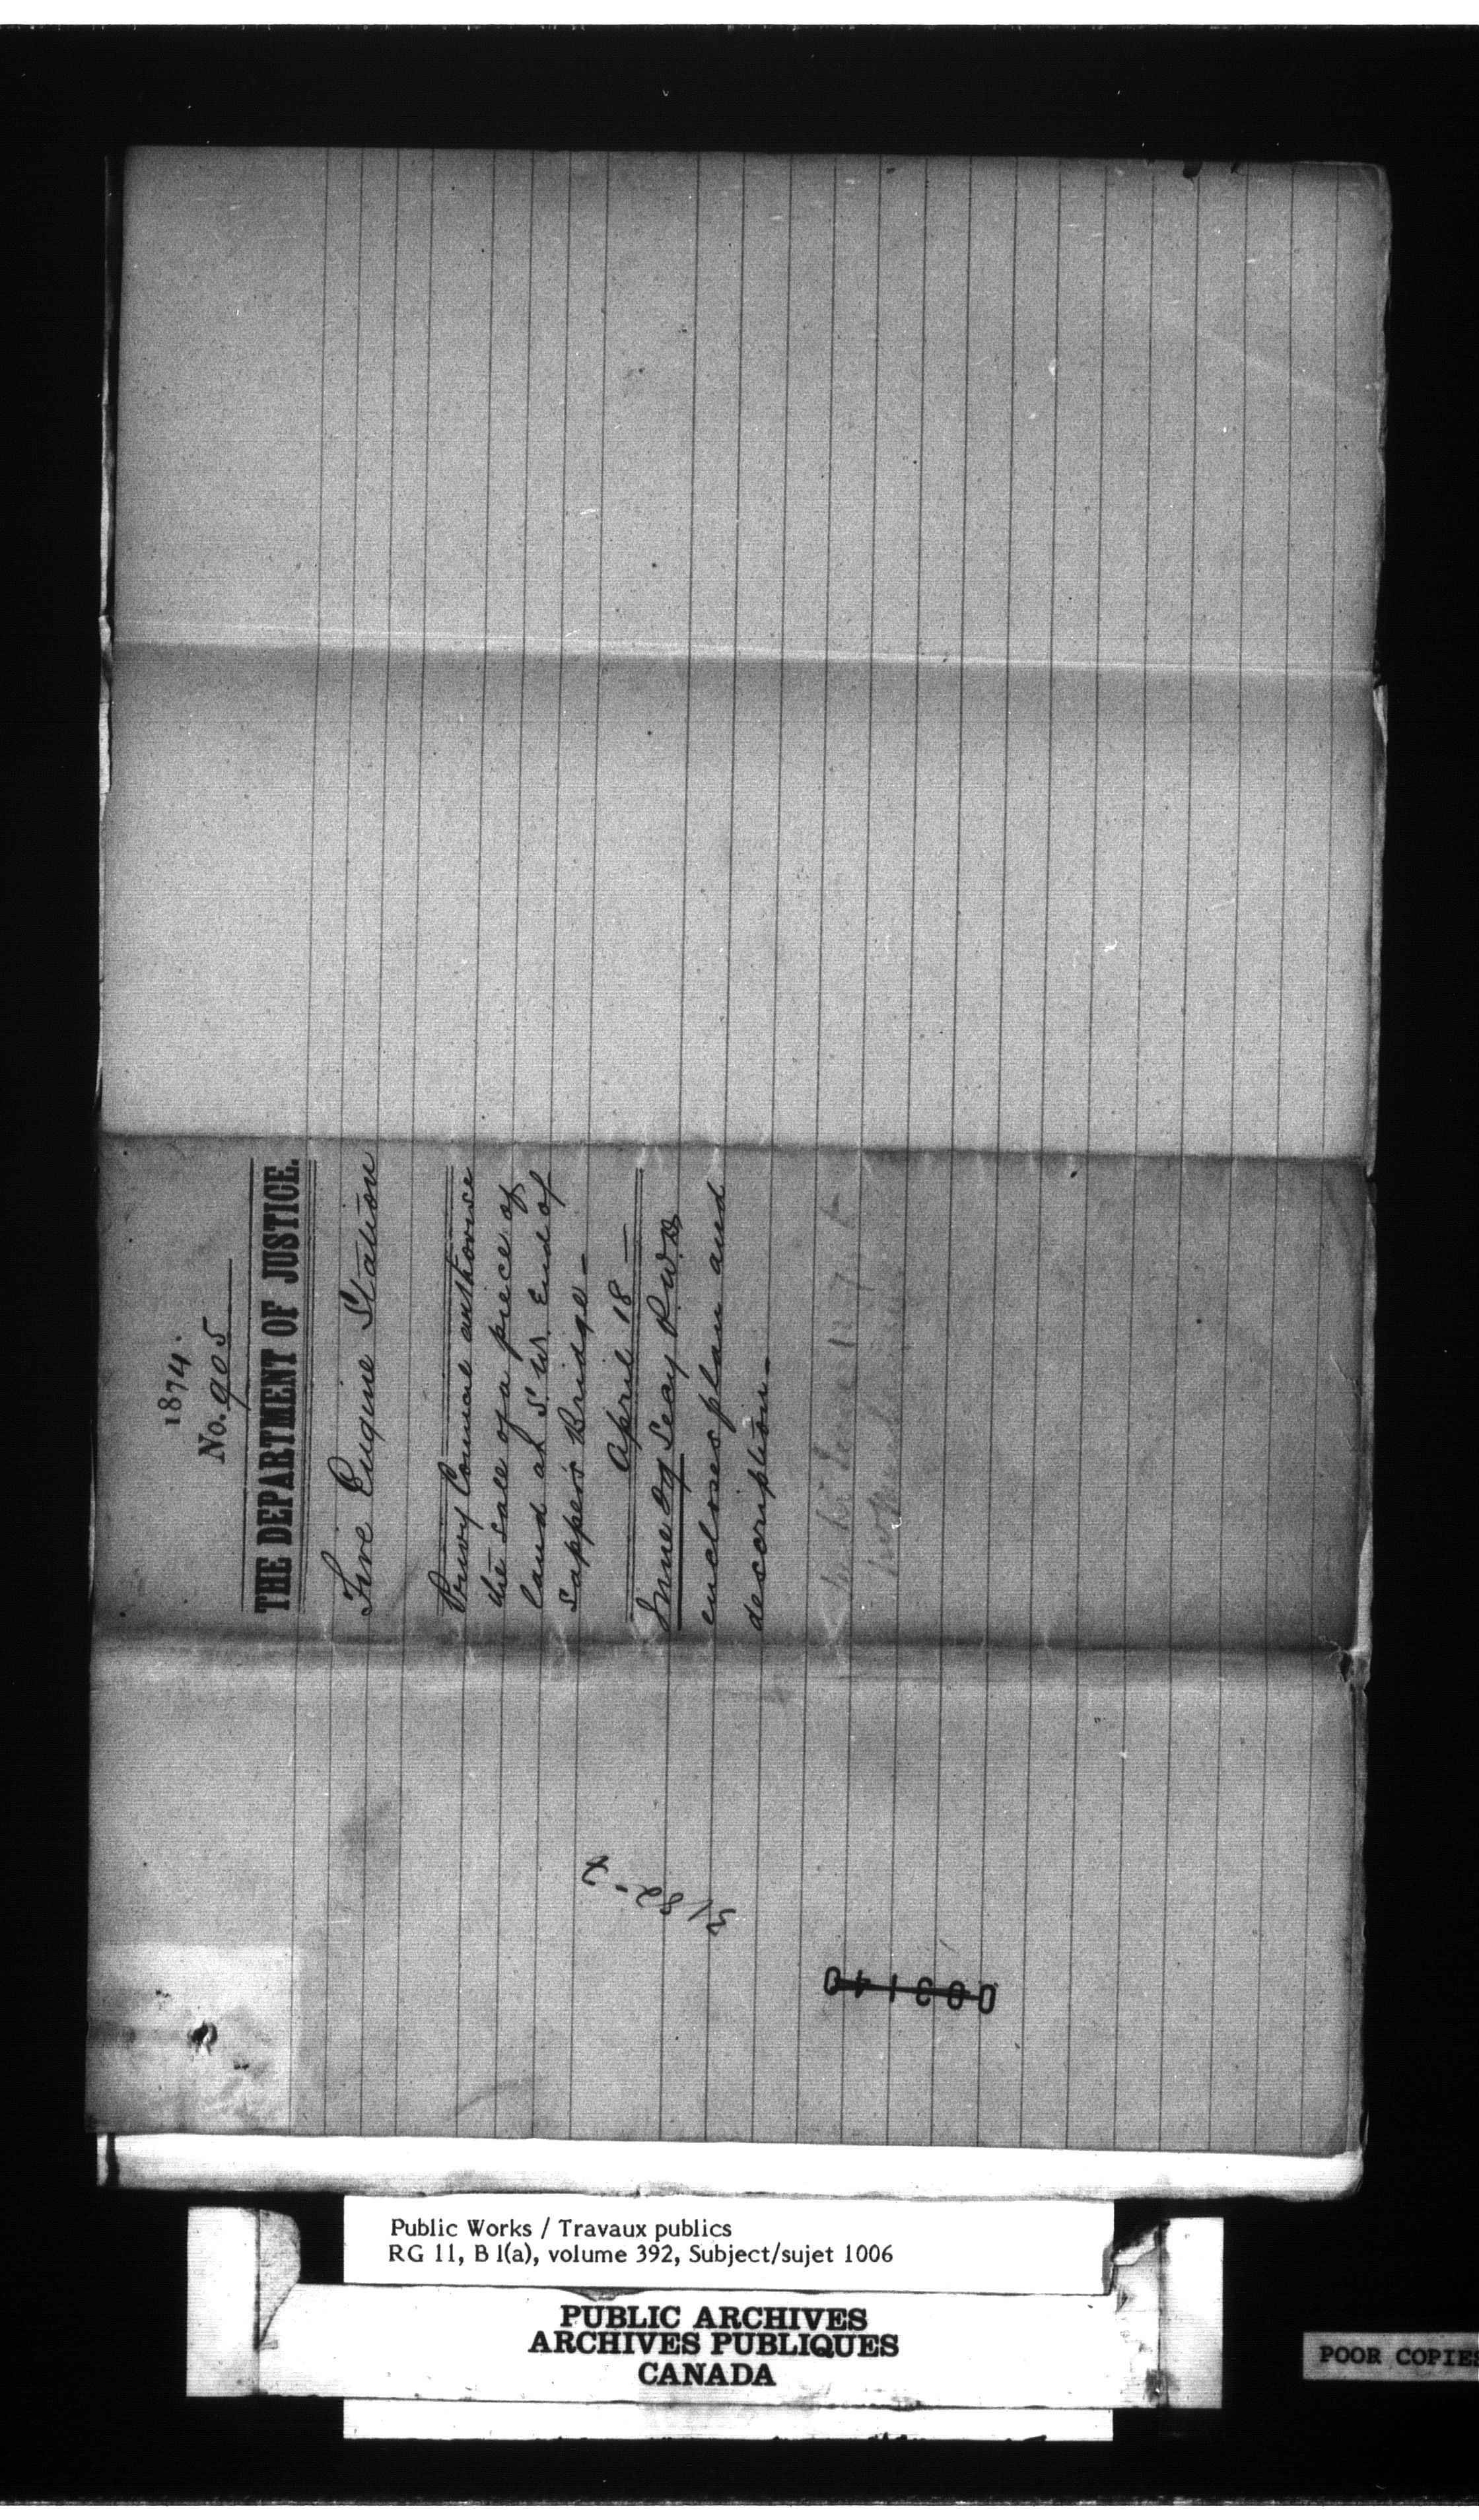 1874.
No. 905
THE DEPARTMENT OF JUSTICE.
Fire Engine Station
Privy Council authorise
the sale of a piece of
land at S.W. End of
Sapper's Bridge –
April 18 –
Secy P.W.D.
encloses plan and
description –
3182-7
003140
Public Works / Travaux publics
RG 11, B 1(a), volume 392, Subject/sujet 1006
PUBLIC ARCHIVES
ARCHIVES PUBLIQUES
CANADA
POOR COPIES